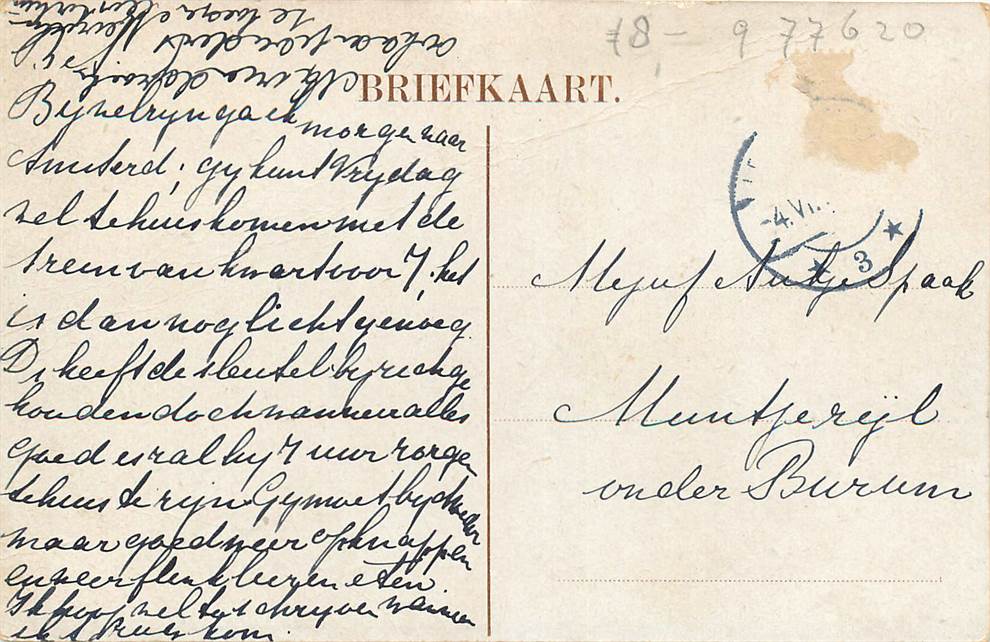 18,- 9 77620
BRIEFKAART.
Bij welzijn ga ik morgen naar
Amsterd; Gy kunt Vrydag
wel te huis komen met de
trein van kwart voor 7, het
is dan nog licht genoeg
Ds heeft de sleutel by zich ge
houden doch wanneer alles
goed is zal hy 7 uur zorgen
te huis te zyn Gy moet by
maar goed weer opknappen
en weer flink leeren eten.
Ik hoop wel te schryven wanneer
ik kom.
-4.VI
3
Mejuf Antje Spaak
Muntjezijl
onder Burum